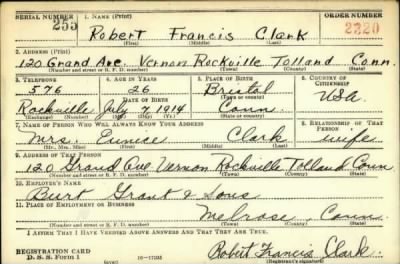 SERIAL NUMBER 1. NAME (Print) ORDER NUMBER
253 Robert Francis Clark 2220
(First) (Middle) (Last)
2. ADDRESS (Print)
120 Grand Ave. Vernon Rockville Tolland Conn.
(Number and street or R. F. D. number) (Town) (County) (State)
3. TELEPHONE 4. AGE IN YEARS 5. PLACE OF BIRTH 6. COUNTRY OF CITIZENSHIP
576 26 Bristol
DATE OF BIRTH (Town or county)
Rockville July 7 1914 Conn. USA
(Exchange) (Number) (Mo.) (Day) (Yr.) (State or country)
7. NAME OF PERSON WHO WILL ALWAYS KNOW YOUR ADDRESS 8. RELATIONSHIP OF THAT PERSON
Mrs. Eunice Clark wife
(Mr., Mrs., Miss) (First) (Middle) (Last)
9. ADDRESS OF THAT PERSON
120 Grand Ave. Vernon Rockville Tolland Conn
(Number and street or R. F. D. number) (Town) (County) (State)
10. EMPLOYER'S NAME
Burt Grant & Sons
11. PLACE OF EMPLOYMENT OR BUSINESS
Melrose, Conn.
(Number and street or R. F. D. number) (Town) (County) (State)
I AFFIRM THAT I HAVE VERIFIED ABOVE ANSWERS AND THAT THEY ARE TRUE.
REGISTRATION CARD
D. S. S. FORM 1 Robert Francis Clark.
(Registrant's signature)